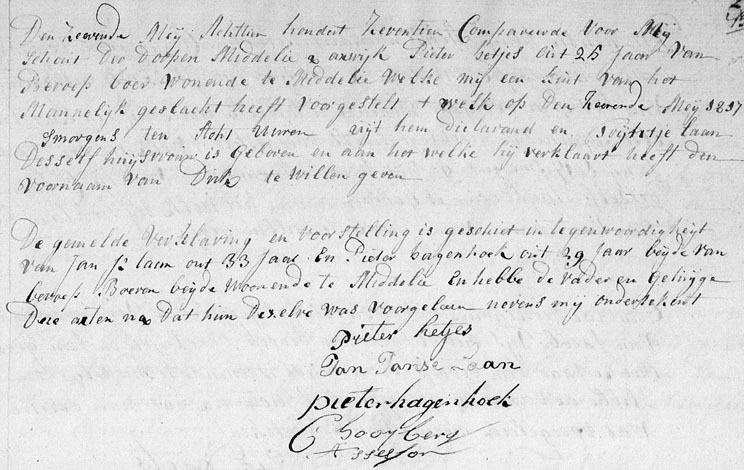 Den zevende Meij Achttien hondert Zeventien Compareerde Voor Mij
Schout Der Dorpen Middelie & axwijk Pieter hetjes out 25 Jaar Van
Beroep boer Wonende te Middelie Welke mij een kint Van het
Mannelijk geslacht heeft Voorgestelt t welk op Den Zevende Meij 1817
smorgens ten Acht Uuren uijt hem declarand en Trijntje laan
Desself huijsvrouw is Geboren en aan het welke hij verklaart heeft den
Voornaam van Dirk te Willen geven
De gemelde Verklaring en voorstelling is geschiet in tegenwoordigheijt
van Jan Js laan out 33 Jaar En Pieter hagenhoek out 29 Jaar beijde van
beroep Boeren beijde Woonende te Middelie En hebbe de vader en Getuijge
Deze acten na Dat hun Dezelve was Voorgelesen nevens mij ondertekent
pieter hetjes
Jan Jansse Laan
pieter hagenhoek
C hooyberg
Assessor